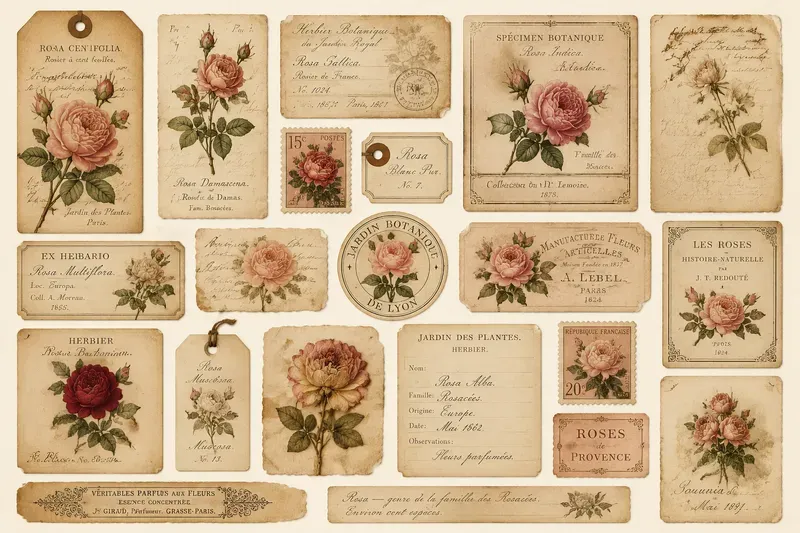 ROSA CENTIFOLIA
Rosier à cent feuilles.
Jardin des Plantes
Paris.
Rosa Damascena.
Rose de Damas.
Fam. Rosacées.
Herbier Botanique
du Jardin Royal
Rosa Gallica.
Rosier de France.
No. 1024
Paris, 1867
SPÉCIMEN BOTANIQUE
Rosa Indica.
Collection du Dr Lemoine.
1878.
15c POSTES
Rosa
Blanc Pur.
No. 7.
EX HERBARIO
Rosa Multiflora.
Loc. Europa.
Coll. A. Moreau.
1855.
JARDIN BOTANIQUE
DE LYON
MANUFACTURE FLEURS
ARTICELLES
A. LEBEL
PARIS
1824
LES ROSES
HISTOIRE-NATURELLE
PAR
J. T. REDOUTÉ
1824
HERBIER
Rosa
Muscosa.
Muscosa.
No. 13.
JARDIN DES PLANTES.
HERBIER.
Nom:
Rosa Alba.
Famille: Rosacées.
Origine: Europe.
Date: Mai 1862.
Observations:
Fleurs parfumées.
RÉPUBLIQUE FRANÇAISE
20c
ROSES
DE
PROVENCE
Mai 1891.
VÉRITABLES PARFUS AUX FLEURS
ESENCE CONCENTRÉE
Jh GIRAUD, Parfumeur. GRASSE-PARIS.
Rosa — genre de la familler des Rosacées.
Environ cent espèces.